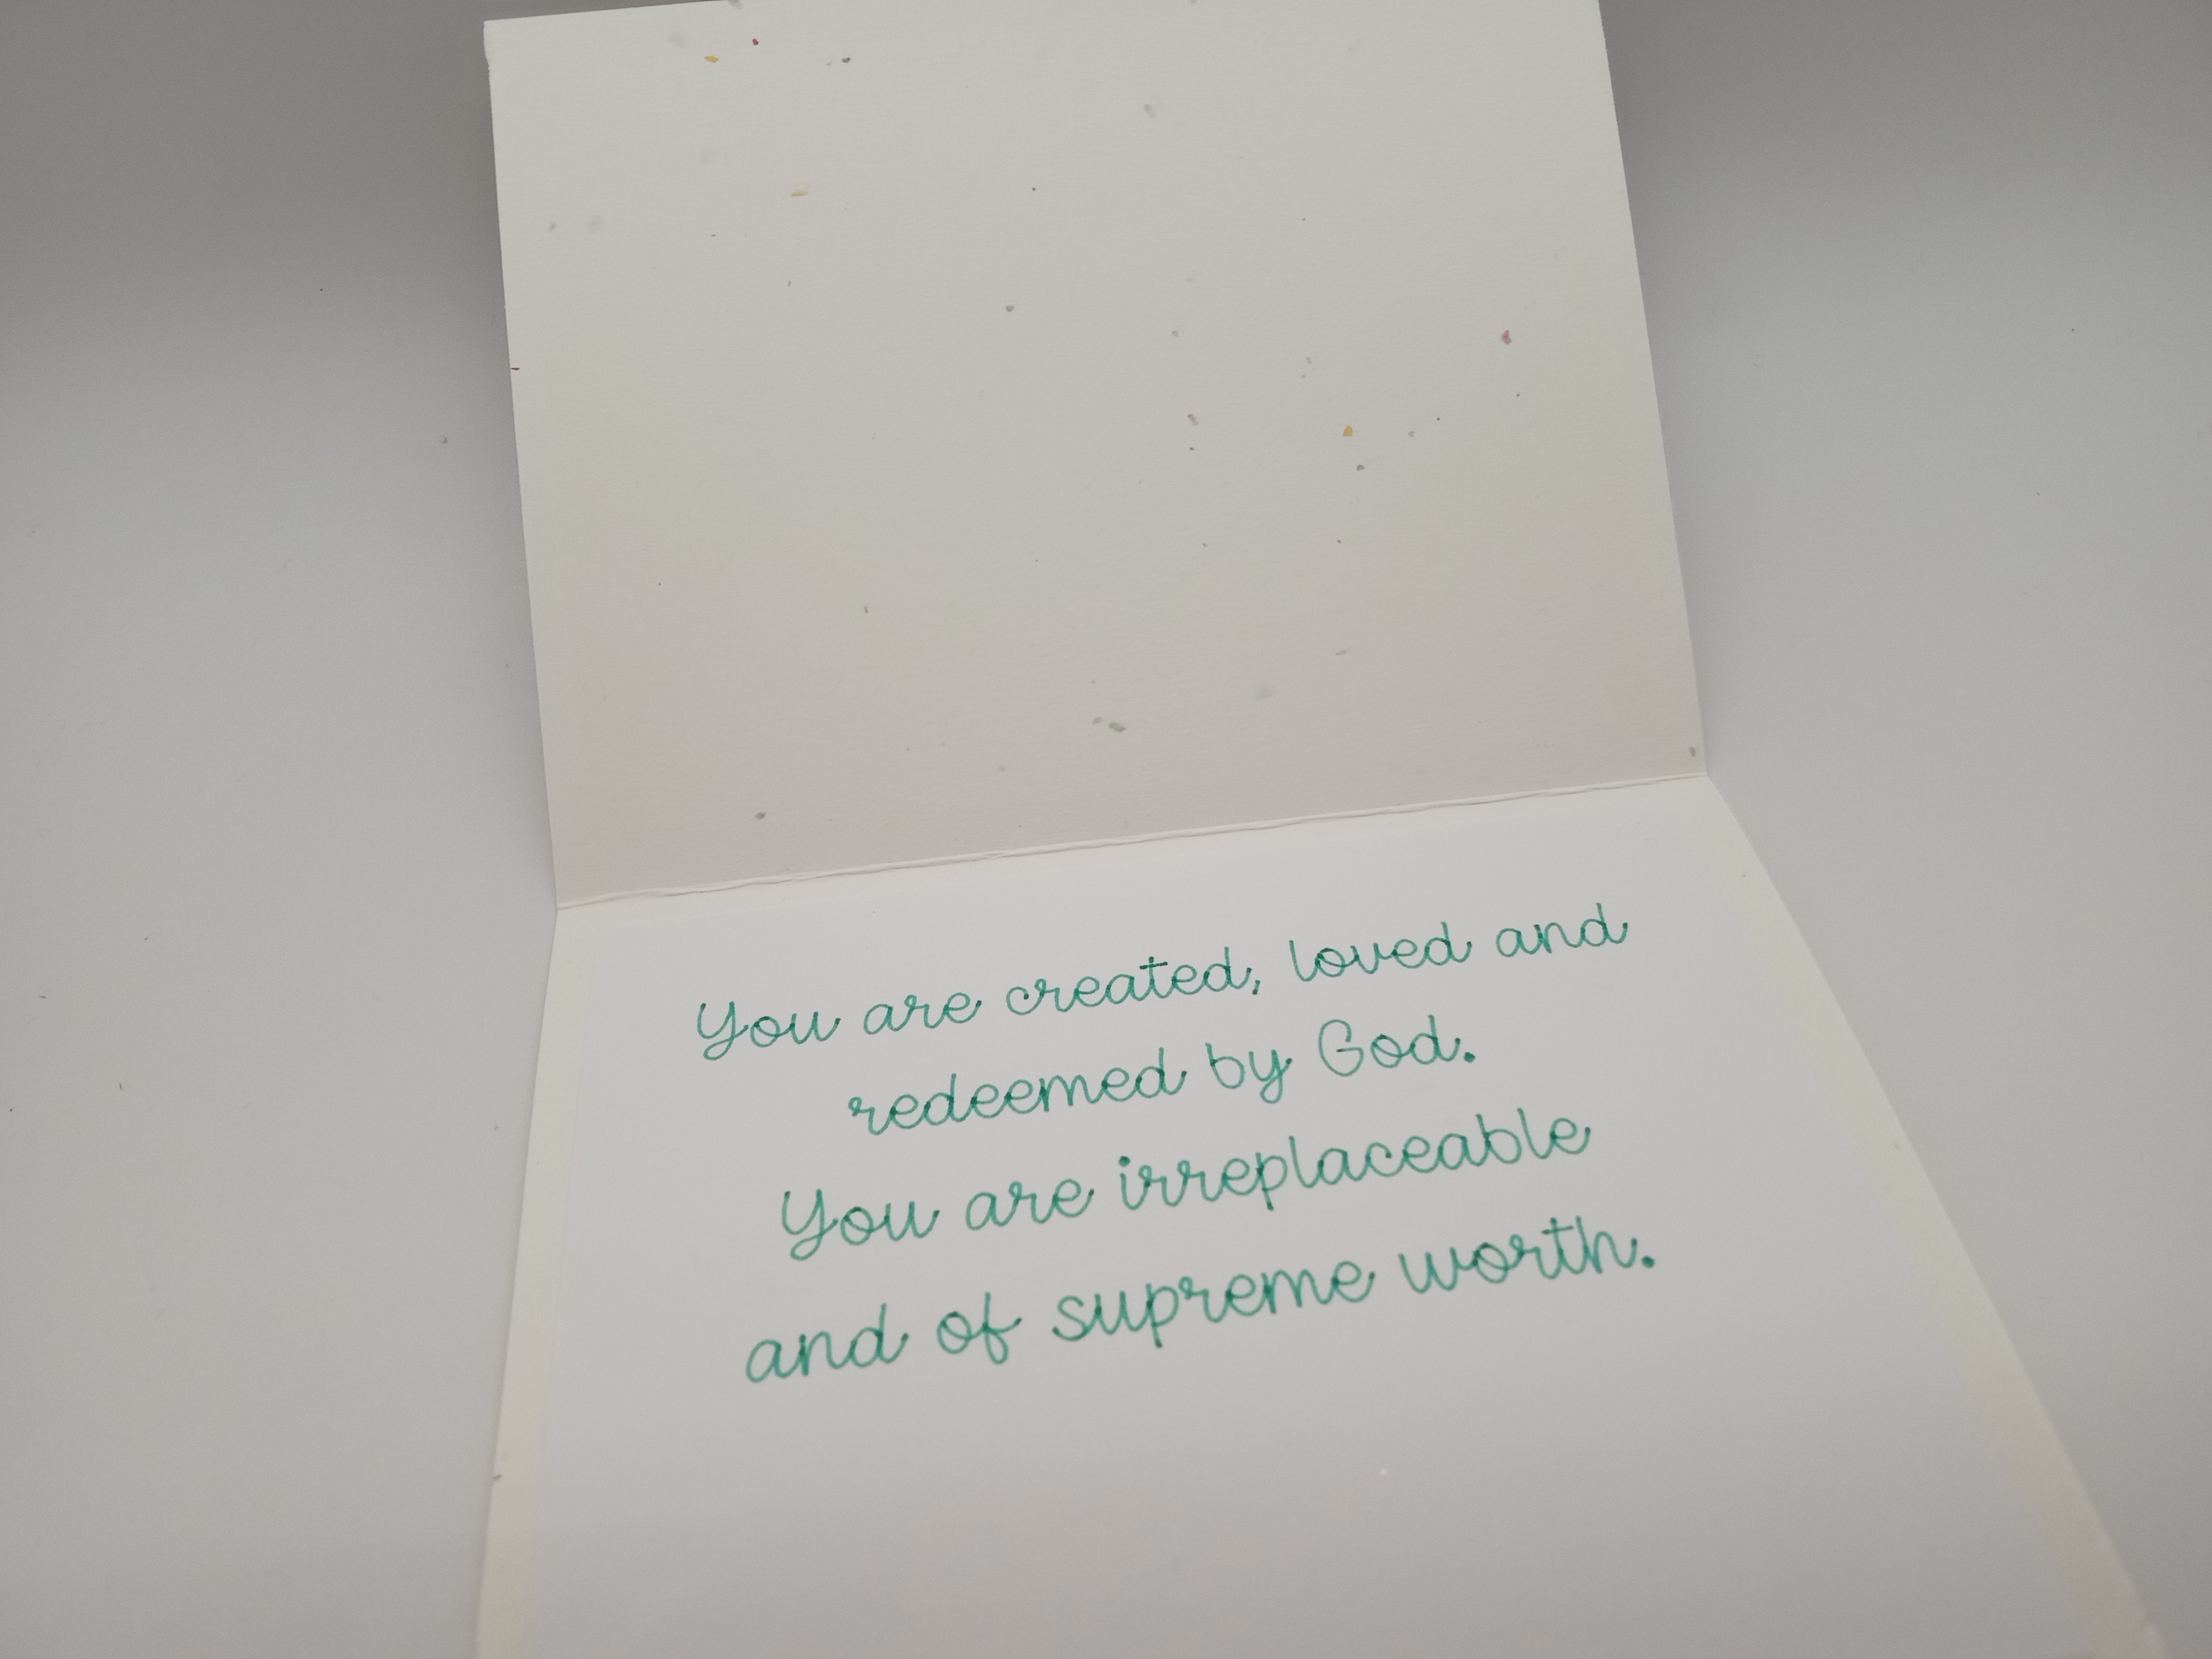 You are created, loved and
redeemed by God.
You are irreplaceable
and of supreme worth.